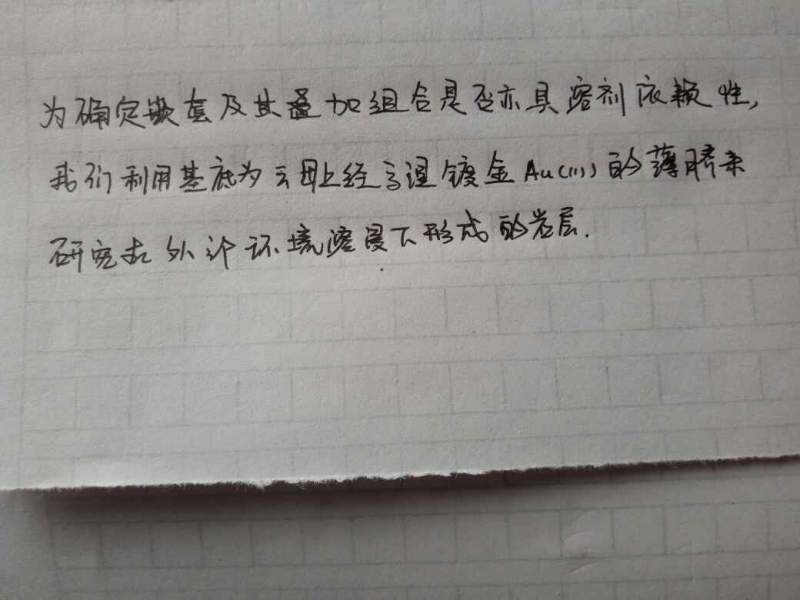 为确定嵌套及其叠加组合是否亦具溶剂依赖性,
我们利用基底为云母上经高温镀金Au(111)的薄膜来
研究在外沪环境溶浸下形成的岩层.